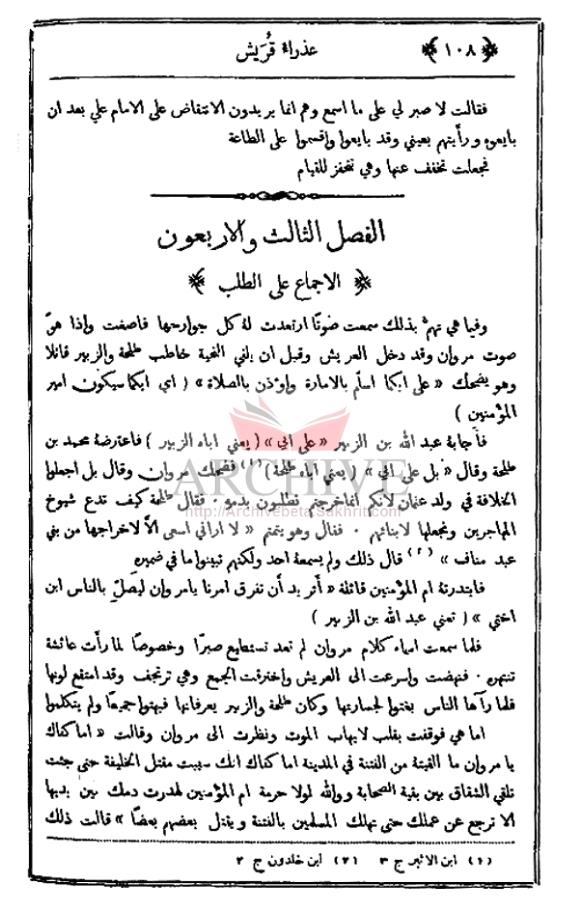 ﴿ ١٠٨ ﴾
عذراء قُرَيش
فقالت لا صبر لي على ما اسمع وهم انما يريدون الانتقاض على الامام علي بعد ان
بايعوه ورأيتهم بعيني وقد بايعوا واقسموا على الطاعة
فجعلت تخفف عنها وهي تتحفز للقيام
الفصل الثالث والاربعون
﴿ الاجماع على الطلب ﴾
وفيا هي تهمّ بذلك سمعت صوتًا ارتعدت لهُ كل جوارحها فاصغت واذا هوَ
صوت مروان وقد دخل العريش وقبل ان يلقي التحية خاطب طلحة والزبير قائلا
وهو يضحك « على ايكما اسلّم بالامارة واوُذن بالصلاة » ( اي ايكما سيكون امير
المؤمنين )
فاجابهُ عبد الله بن الزبير « على ابي » ( يعني اباه الزبير ) فاعترضهُ محمد بن
طلحة وقال « بل على ابي » ( يعني اباه طلحة ) (١) فضحك مروان وقال بل اجعلوا
الخلافة في ولد عثمان لانكم انما خرجتم تطلبون بدمهِ . فقال طلحة كيف تدع شيوخ
المهاجرين ونجعلها لابنائهم . فقال وهو يتمتم « لا اراني اسعى الاّ لاخراجها من بني
عبد مناف » (٢) قال ذلك ولم يسمعهُ احد ولكنهم تبينوا ما في ضميرهِ
فابتدرتهُ ام المؤمنين قائلة « أتريد أن تفرق امرنا يا مروان ليصلِّ بالناس ابن
اختي » ( تعني عبد الله بن الزبير )
فلما سمعت اسماء كلام مروان لم تعد تستطيع صبرًا وخصوصًا لما رأت عائشة
تنتهره . فنهضت واسرعت الى العريش واخترقت الجمع وهي ترتجف وقد امتقع لونها
فلما رآها الناس بغتوا لجسارتها وكان طلحة والزبير يعرفانها فبهتوا جميعًا ولم يتكلموا
اما هي فوقفت بقلب لا يهاب الموت ونظرت الى مروان وقالت « اما كفاك
يا مروان ما القيتهُ من الفتنة في المدينة اما كفاك انك سببت مقتل الخليفة حتى جئت
تلقي الشقاق بين بقية الصحابة ووالله لولا حرمة ام المؤمنين لهدرت دمك بين يديها
الا ترجع عن عملك حتى تهلك المسلمين بالفتنة ويقتل بعضهم بعضًا » قالت ذلك
(١) ابن الاثير ج ٣ (٢) ابن خلدون ج ٢
ARCHIVE
http://Archivebeta.Sakhrit.com